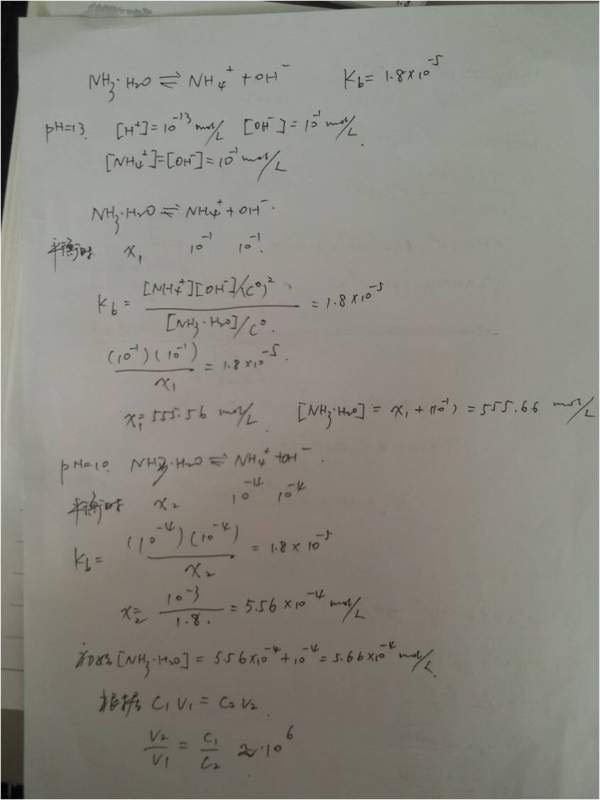 NH₃·H₂O ⇌ NH₄⁺ + OH⁻ K_b = 1.8×10⁻⁵
pH=13. [H⁺]=10⁻¹³ mol/L [OH⁻]=10⁻¹ mol/L.
[NH₄⁺]=[OH⁻]=10⁻¹ mol/L
NH₃·H₂O ⇌ NH₄⁺ + OH⁻.
平衡时 x₁ 10⁻¹ 10⁻¹.
K_b = [NH₄⁺][OH⁻]/(C⁰)² / [NH₃·H₂O]/C⁰. = 1.8×10⁻⁵
(10⁻¹)(10⁻¹) / x₁ = 1.8×10⁻⁵.
x₁=555.56 mol/L. [NH₃·H₂O] = x₁+(10⁻¹) = 555.66 mol/L
pH=10. NH₃·H₂O ⇌ NH₄⁺ + OH⁻.
平衡时 x₂ 10⁻⁴ 10⁻⁴
K_b = (10⁻⁴)(10⁻⁴) / x₂ = 1.8×10⁻⁵
x₂= 10⁻³ / 1.8. = 5.56×10⁻⁴ mol/L
初始[NH₃·H₂O] = 5.56×10⁻⁴+10⁻⁴ = 5.66×10⁻⁴ mol/L.
根据 C₁V₁ = C₂V₂.
V₂/V₁ = C₁/C₂ ≈ 10⁶